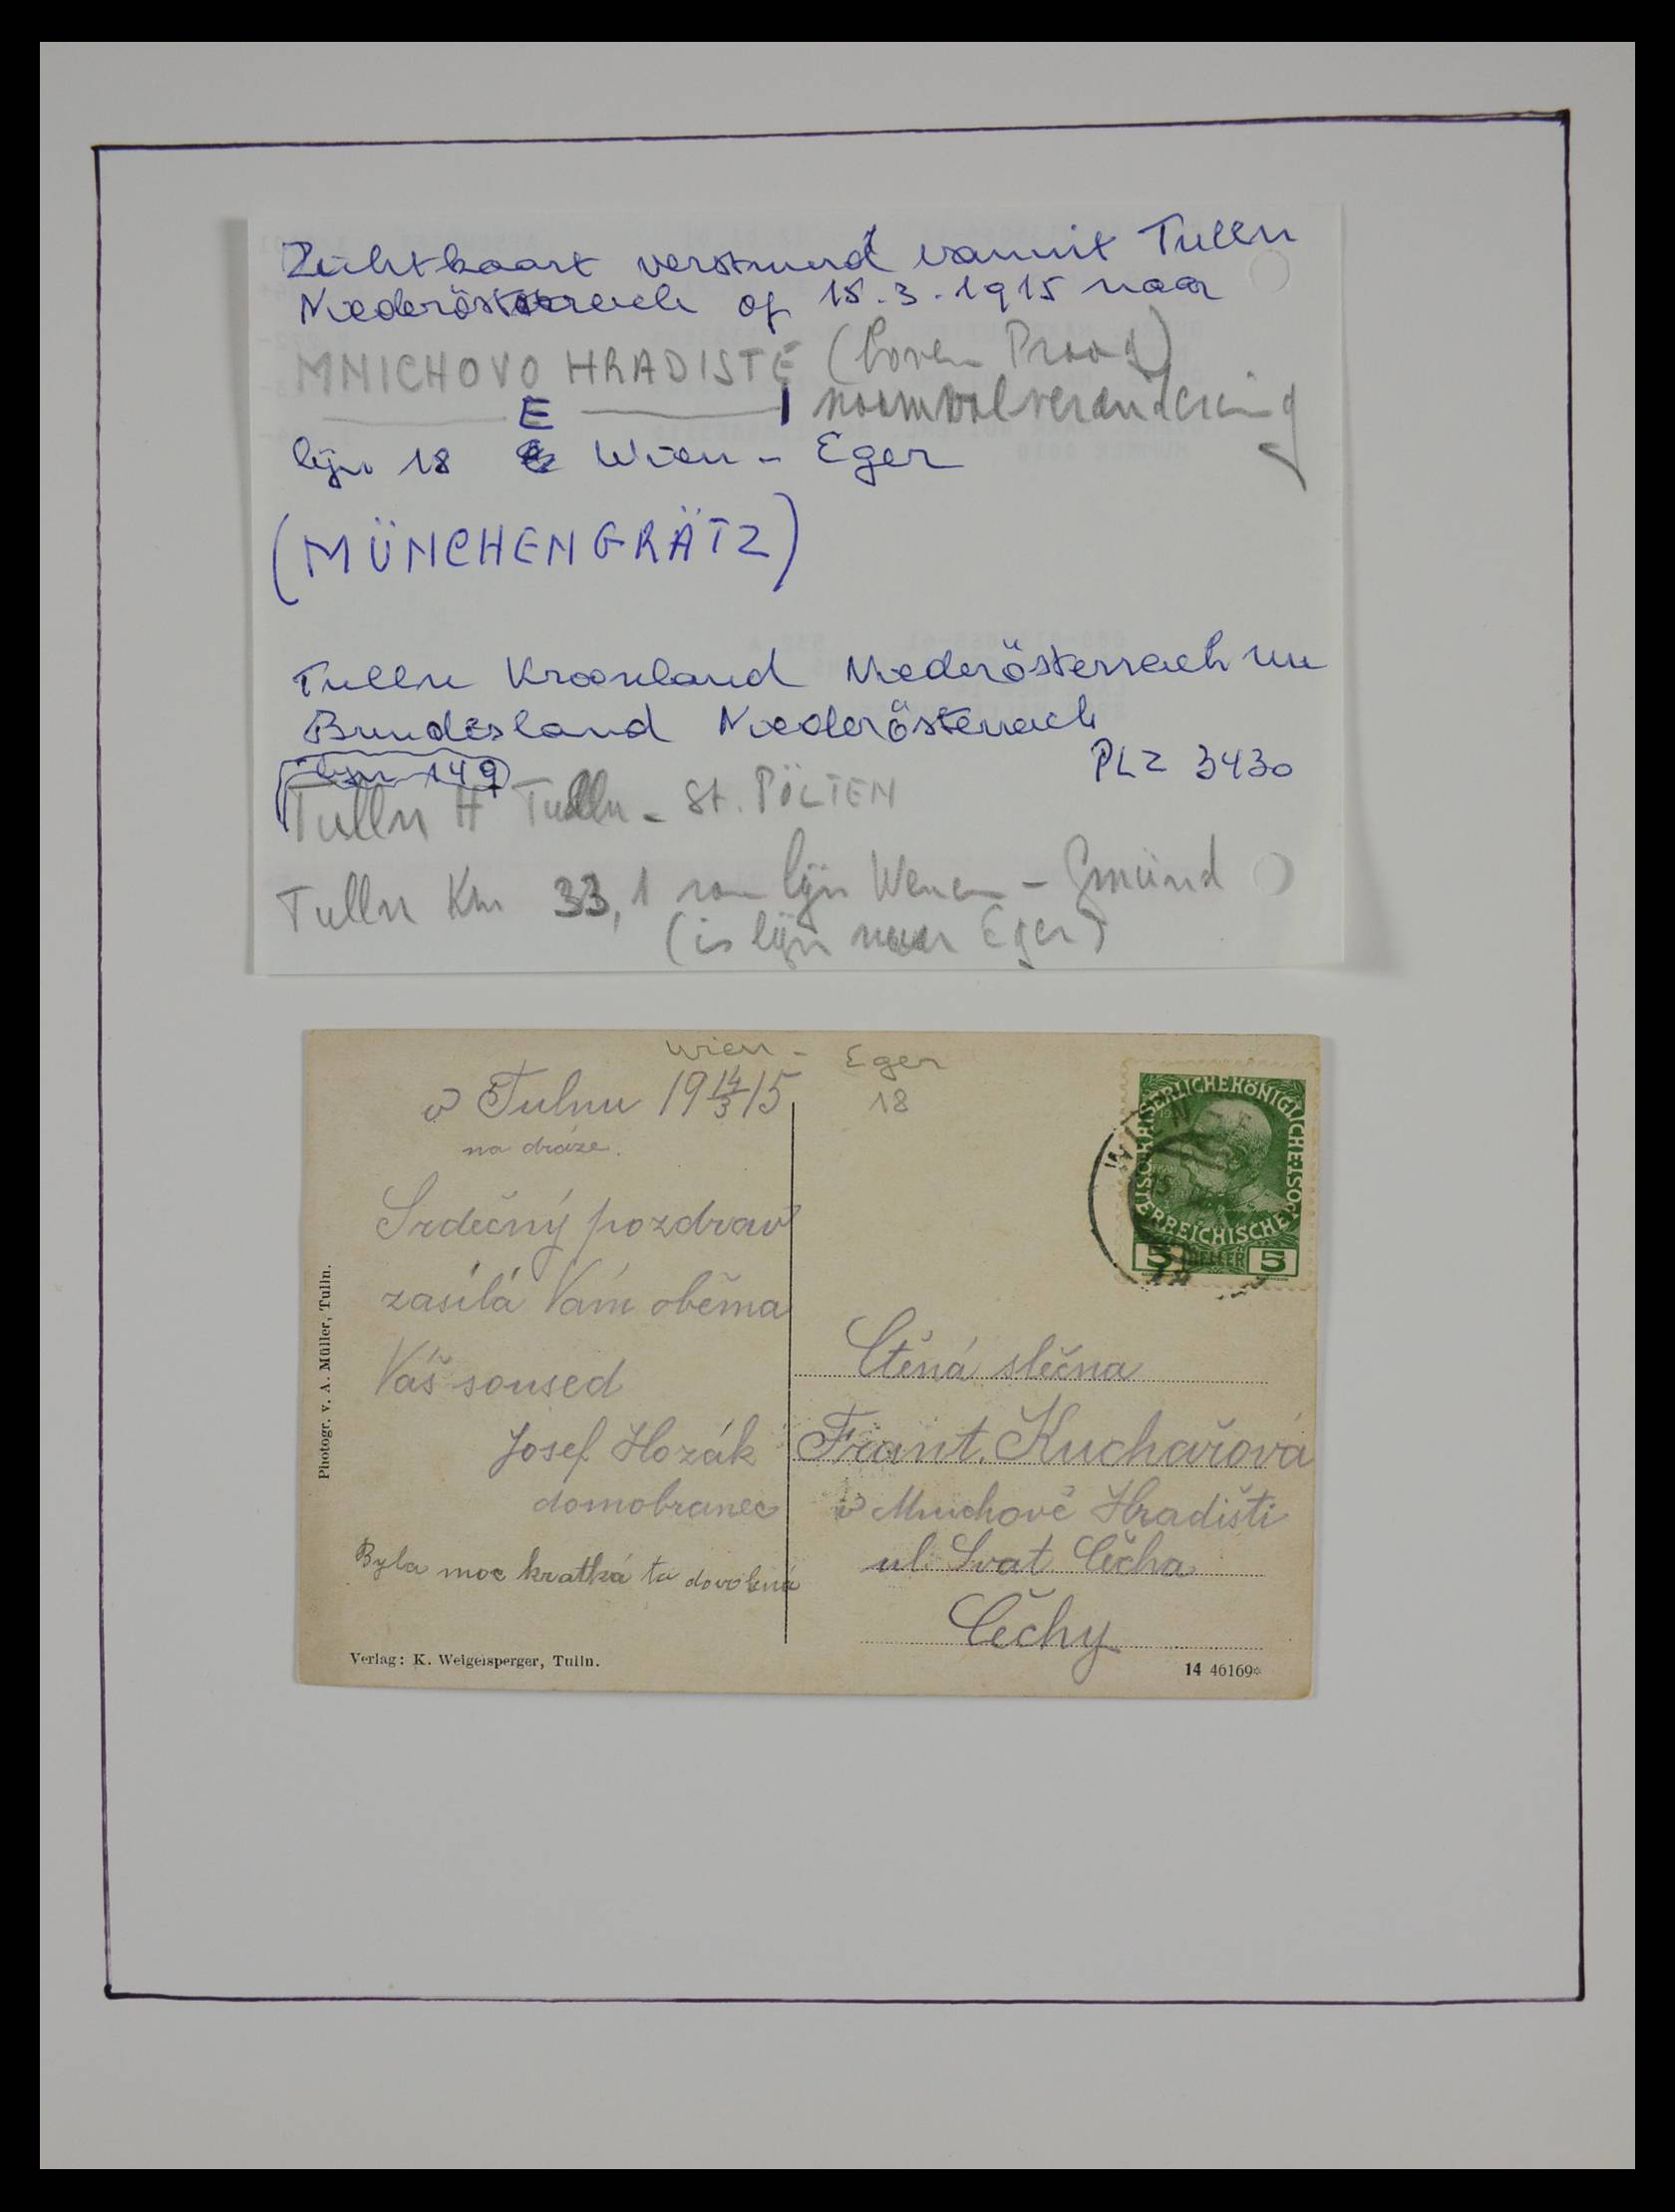 Zichtkaart verstuurd vanuit Tulln
Niederösterreich op 15.3.1915 naar
MNICHOVO HRADISTE (boven Praag)
E I naamvalverandering
lijn 18 Wien - Eger
(MÜNCHENGRÄTZ)
Tulln Kroonland Niederösterreich nu
Bundesland Niederösterreich
lijn 149 PLZ 3430
Tulln H Tulln - St. PÖLTEN
Tulln Km 33,1 van lijn Wenen - Gmünd
(is lijn naar Eger)
Wien - Eger
18
v Tulnu 19 14/3 15
na dráze.
Srdečný pozdrav
zasílá Vám oběma
Váš soused
Josef Hozák
domobranec
Byla moc kratká ta dovolená
Photogr. v. A. Müller, Tulln.
Verlag: K. Weigelsperger, Tulln.
KAISERLICHE KÖNIGLICHE ÖSTERREICHISCHE
5 HELLER 5
WIEN
15
18
Ctěná slečna
Frant. Kuchařová
v Mnichově Hradišti
ul. Svat. Čecha
Čechy
14 46169*